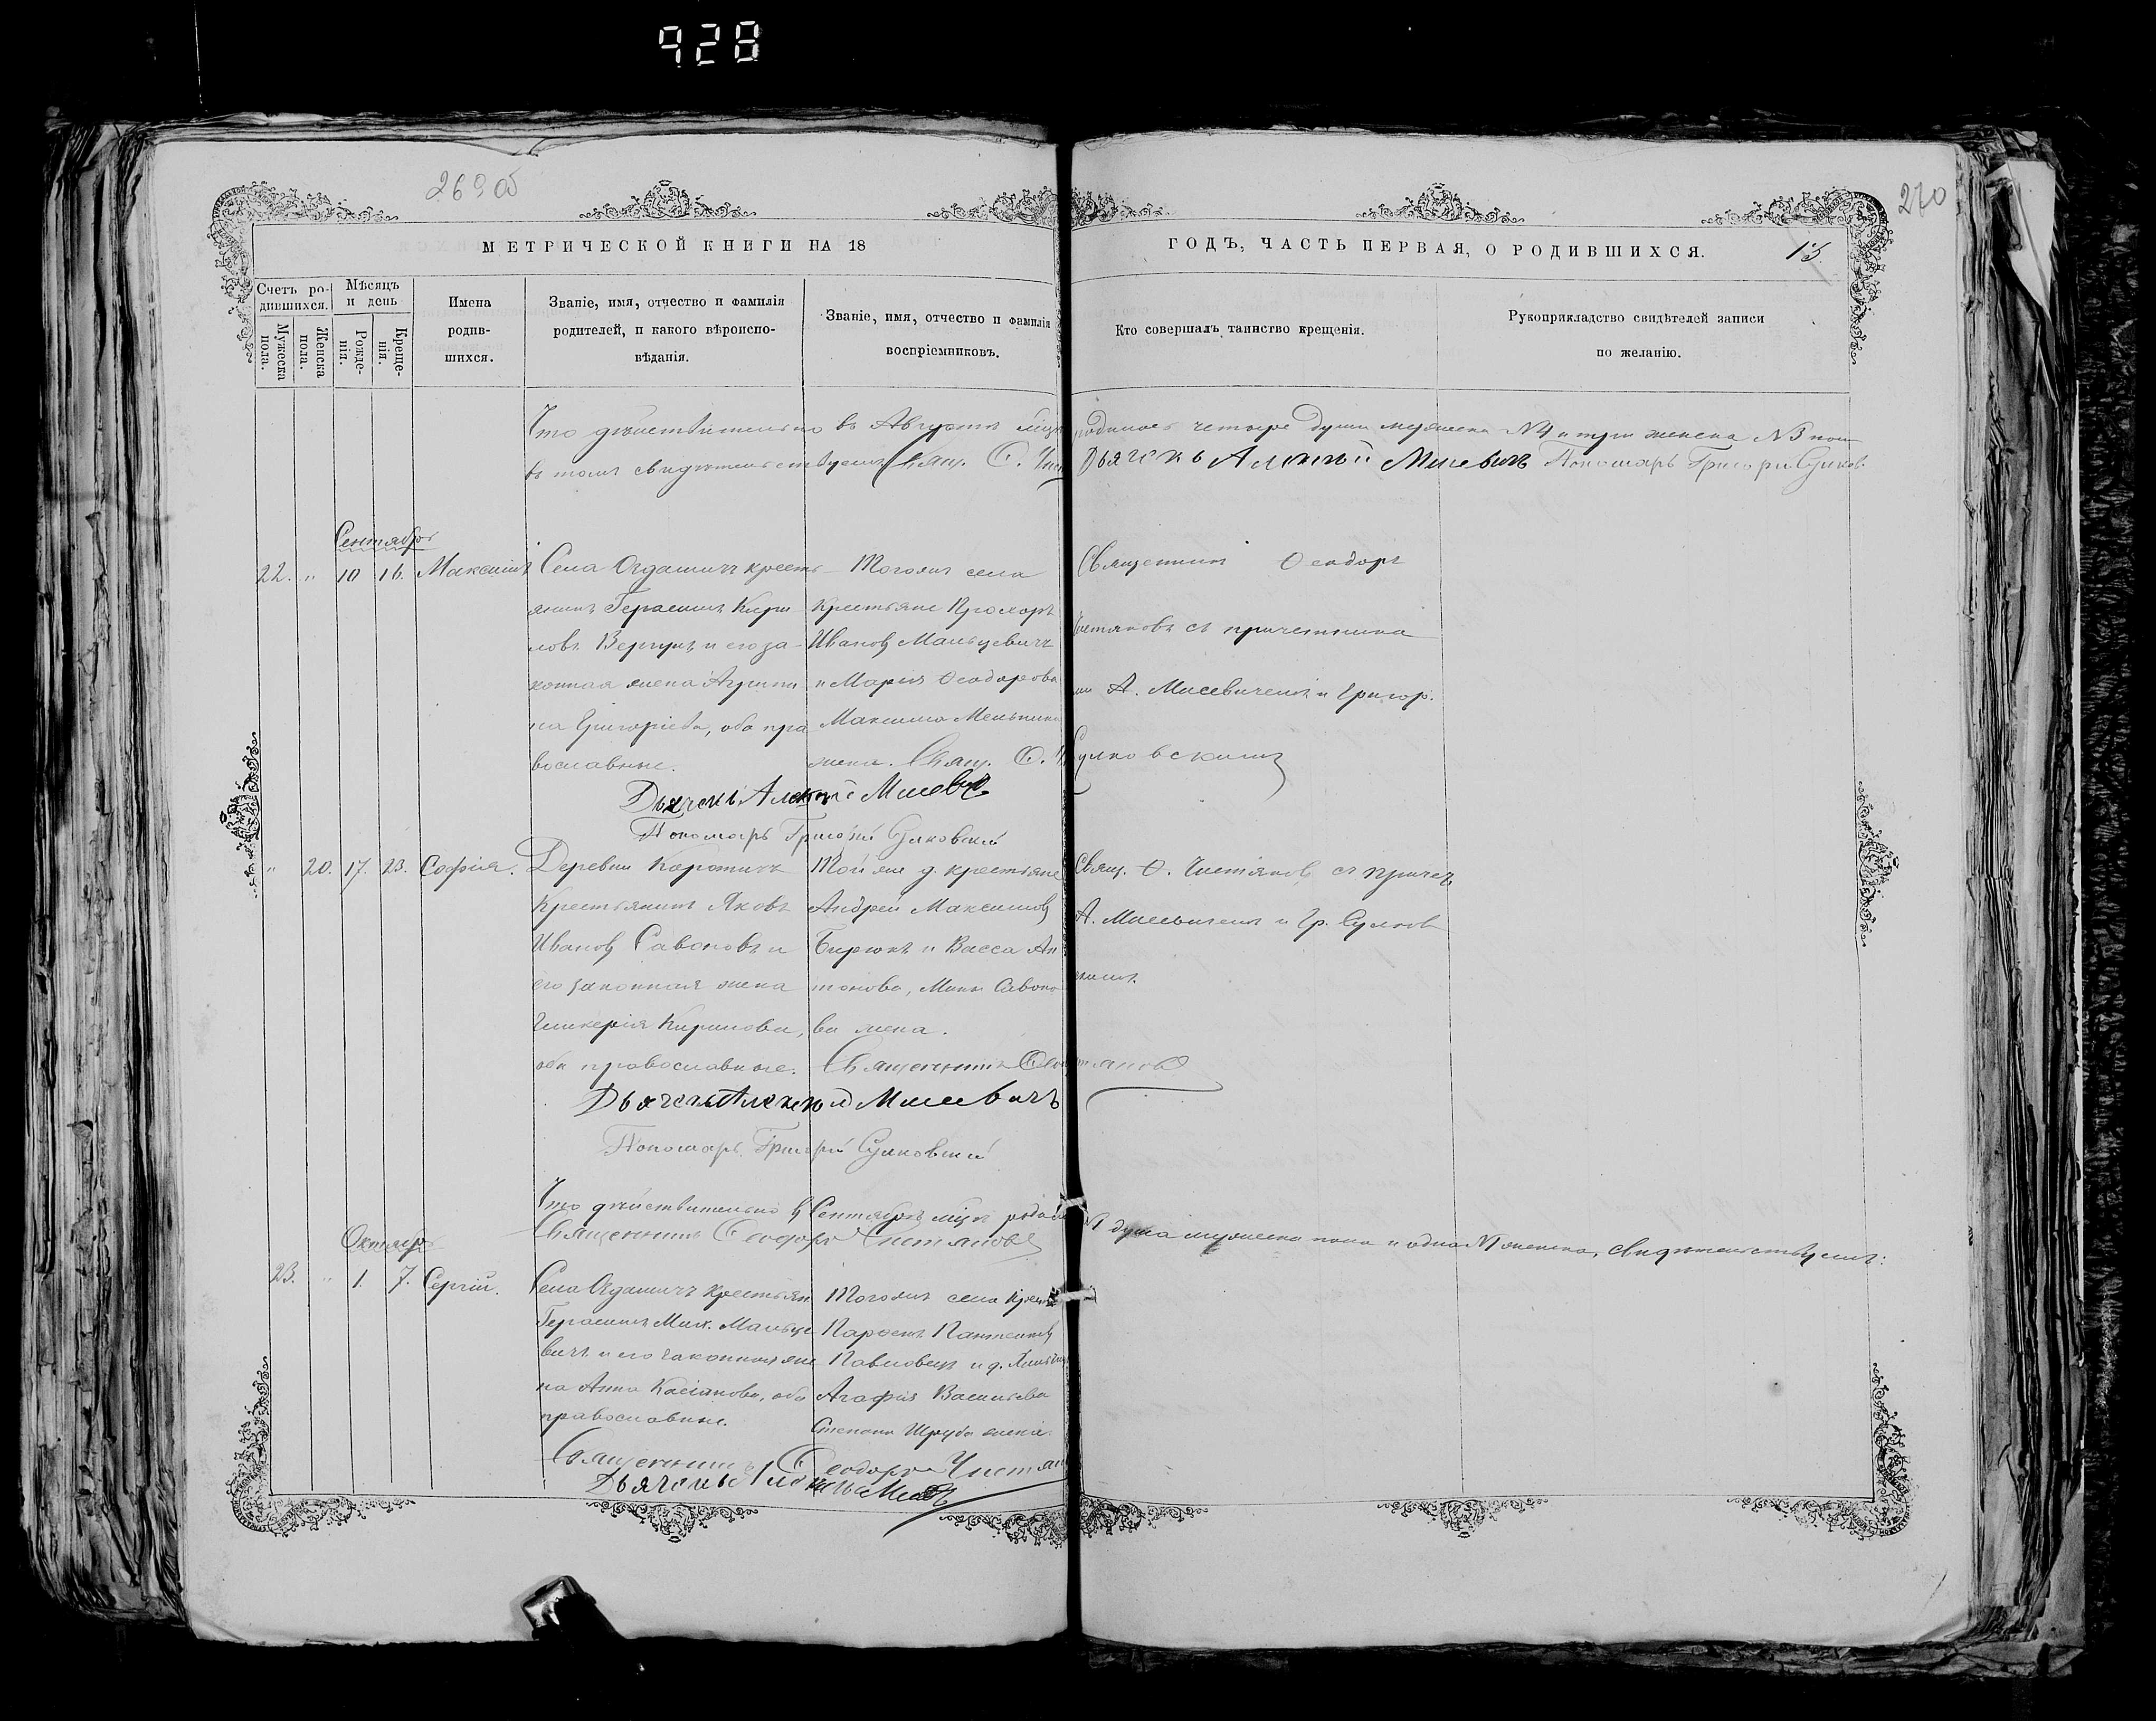 928
269 об
270
МЕТРИЧЕСКОЙ КНИГИ НА 18
ГОДЪ, ЧАСТЬ ПЕРВАЯ, О РОДИВШИХСЯ.
15.
Счетъ родившихся.
Мужеска пола.
Женска пола.
Мѣсяцъ и день
Рожденія.
Крещенія.
Имена родившихся.
Званіе, имя, отчество и фамилія
родителей, и какого вѣроиспо-
вѣданія.
Званіе, имя, отчество и фамилія
воспріемниковъ.
Кто совершалъ таинство крещенія.
Рукоприкладство свидѣтелей записи
по желанію.
Что дѣйствительно въ Августѣ родилось четыре души мужеска №4 и три женска №3
въ томъ свидѣтельствуемъ Свящ. Ѳ. Дьячекъ Алексѣй Мисевичъ Пономарь Григорій
Сентябрь
22. " 10 16. Максимъ
Села Огдамичъ кресть-
янинъ Герасимъ Кири
ловъ Вергунъ и его за-
конная жена Агрипи
на Григоріева, оба пра
вославные.
Тогожъ села
крестьяне Прохоръ
Ивановъ Мальцевичъ
и Марія Ѳеодорова
Максима Мельника
жена. Свящ. Ѳ.
Священникъ Ѳеодоръ
Чистяковъ съ причетника
ми А. Мисевичемъ и Григор.
Сулковскимъ
Дьячекъ Алексѣй Мисевичъ
Пономарь Григорій Сулковскій
" 20. 17. 23. Софія.
Деревни Коротичъ
крестьянинъ Яковъ
Ивановъ Савоновъ и
его законная жена
Гликерія Кирилова,
оба православные.
Той же д. крестьяне
Андрей Максимовъ
Бирюкъ и Васса Ан
тонова, Савоно
ва жена.
Свящ. Ѳ. Чистяковъ съ причет.
А. Мисевичемъ и Гр. Сулков
скимъ.
Священникъ Ѳ. Чистяковъ
Дьячекъ Алексѣй Мисевичъ
Пономарь Григорій Сулковскій
Что дѣйствительно въ Сентябрѣ мѣсяцѣ №1 душа мужеска пола и одна №1 женска, свидѣтельствуемъ:
Священникъ Ѳеодоръ Чистяковъ
Октябрь
23. " 1. 7. Сергій.
Села Огдамичъ крестьян
Герасимъ Мих. Мальце
вичъ и его законная же
на Анна Касіянова, оба
православные.
Тогожъ села
Павловецъ и д.
Агафія Васильева
Степана Шруба жена.
Священникъ Ѳеодоръ
Дьячекъ Алексѣй